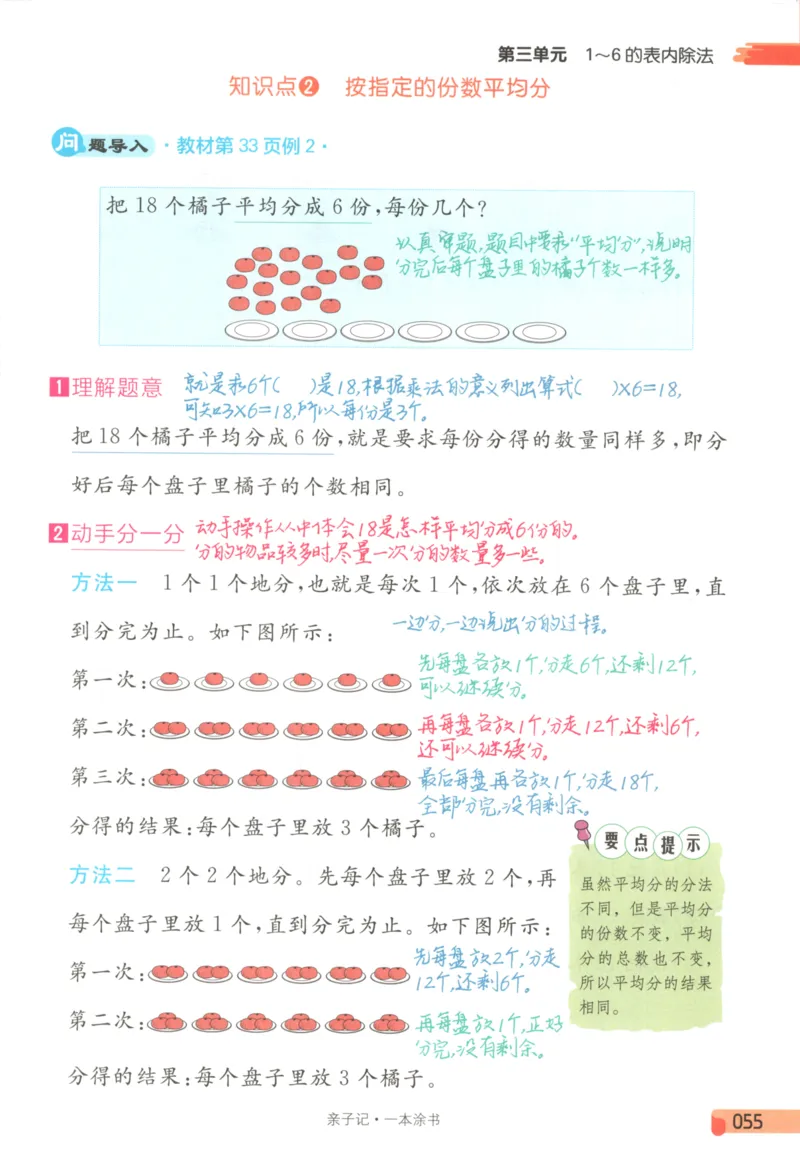 第三单元 1~6的表内除法
知识点❷ 按指定的份数平均分
问题导入 ·教材第33页例2·
把18个橘子平均分成6份,每份几个?
认真审题,题目中要求“平均分”,说明
分完后每个盘子里的橘子个数一样多。
1 理解题意 就是求6个( )是18,根据乘法的意义列出算式( )×6=18,
可知3×6=18,所以每份是3个。
把18个橘子平均分成6份,就是要求每份分得的数量同样多,即分
好后每个盘子里橘子的个数相同。
2 动手分一分 动手操作从中体会18是怎样平均分成6份的。
分的物品较多时,尽量一次分的数量多一些。
方法一 1个1个地分,也就是每次1个,依次放在6个盘子里,直
到分完为止。如下图所示: 一边分,一边说出分的过程。
第一次: 先每盘各放1个,分走6个,还剩12个,
可以继续分。
第二次: 再每盘各放1个,分走12个,还剩6个,
还可以继续分。
第三次: 最后每盘再各放1个,分走18个,
全部分完,没有剩余。
分得的结果:每个盘子里放3个橘子。
方法二 2个2个地分。先每个盘子里放2个,再
每个盘子里放1个,直到分完为止。如下图所示:
第一次: 先每盘放2个,分走
12个,还剩6个。
第二次: 再每盘放1个,正好
分完,没有剩余。
分得的结果:每个盘子里放3个橘子。
要点提示
虽然平均分的分法
不同,但是平均分
的份数不变,平均
分的总数也不变,
所以平均分的结果
相同。
亲子记·一本涂书
055